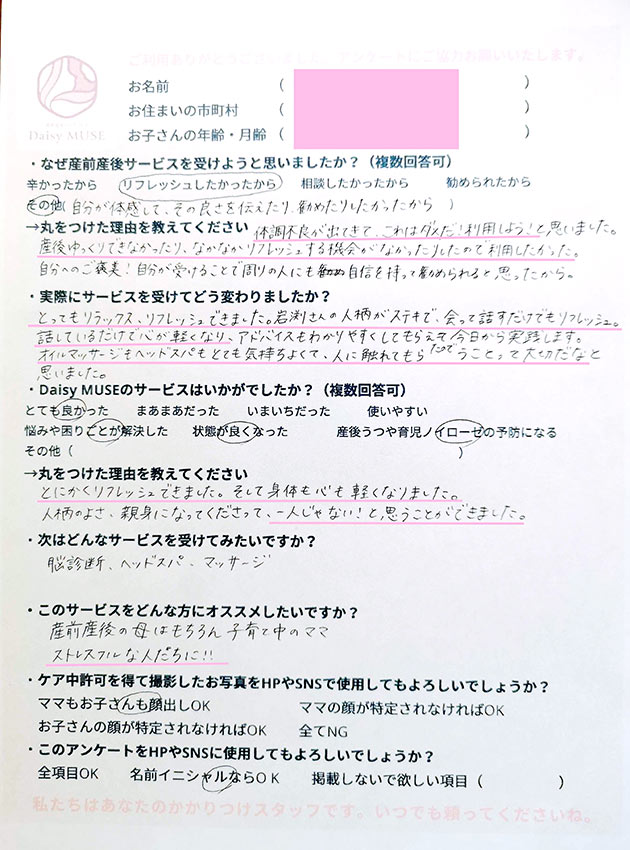 ご利用ありがとうございました。アンケートにご協力お願いいたします。
Daisy MUSE
お名前 ( )
お住まいの市町村 ( )
お子さんの年齢・月齢 ( )
・なぜ産前産後サービスを受けようと思いましたか？（複数回答可）
辛かったから リフレッシュしたかったから 相談したかったから 勧められたから
その他(自分が体感して、その良さを伝えたり、勧めたりしたかったから )
→丸をつけた理由を教えてください 体調不良が出てきて、これはダメだ!利用しよう!と思いました。
産後ゆっくりできなかったり、なかなかリフレッシュする機会がなかったりしたので利用したかった。
自分へのご褒美!自分が受けることで周りの人にも自信を持って勧められると思ったから。
・実際にサービスを受けてどう変わりましたか？
とってもリラックス、リフレッシュできました。岩渕さんの人柄がステキで、会って話すだけでもリフレッシュ。
話しているだけで心が軽くなり、アドバイスもわかりやすくしてもらえて今日から実践します。
オイルマッサージもヘッドスパもとても気持ちよくて、人に触れてもらうことって大切だなと
思いました。
・Daisy MUSEのサービスはいかがでしたか？（複数回答可）
とても良かった まあまあだった いまいちだった 使いやすい
悩みや困りごとが解決した 状態が良くなった 産後うつや育児ノイローゼの予防になる
その他（ ）
→丸をつけた理由を教えてください
とにかくリフレッシュできました。そして身体も心も軽くなりました。
人柄のよさ、親身になってくださって、一人じゃない!と思うことができました。
・次はどんなサービスを受けてみたいですか？
脳診断、ヘッドスパ、マッサージ
・このサービスをどんな方にオススメしたいですか？
産前産後の母はもちろん子育て中のママ
ストレスフルな人たちに!!
・ケア中許可を得て撮影したお写真をHPやSNSで使用してもよろしいでしょうか？
ママもお子さんも顔出しOK ママの顔が特定されなければOK
お子さんの顔が特定されなければOK 全てNG
・このアンケートをHPやSNSに使用してもよろしいでしょうか？
全項目OK 名前イニシャルならＯＫ 掲載しないで欲しい項目（ ）
私たちはあなたのかかりつけスタッフです。いつでも頼ってくださいね。